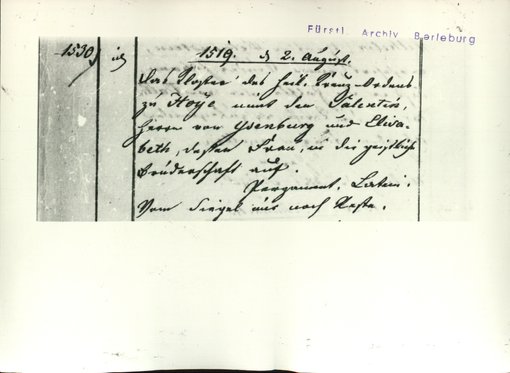 Fürstl. Archiv Berleburg
1530, 1519. d 2. August.
Das Kloster des heil. Kreuz-Ordens
zu Hoye nimt den Valentin,
Herrn von Ysenburg und Elisa-
beth, dessen Frau, in die geistliche
Brüderschaft auf.
Pergament. Latein.
Vom Siegel nur noch Reste.